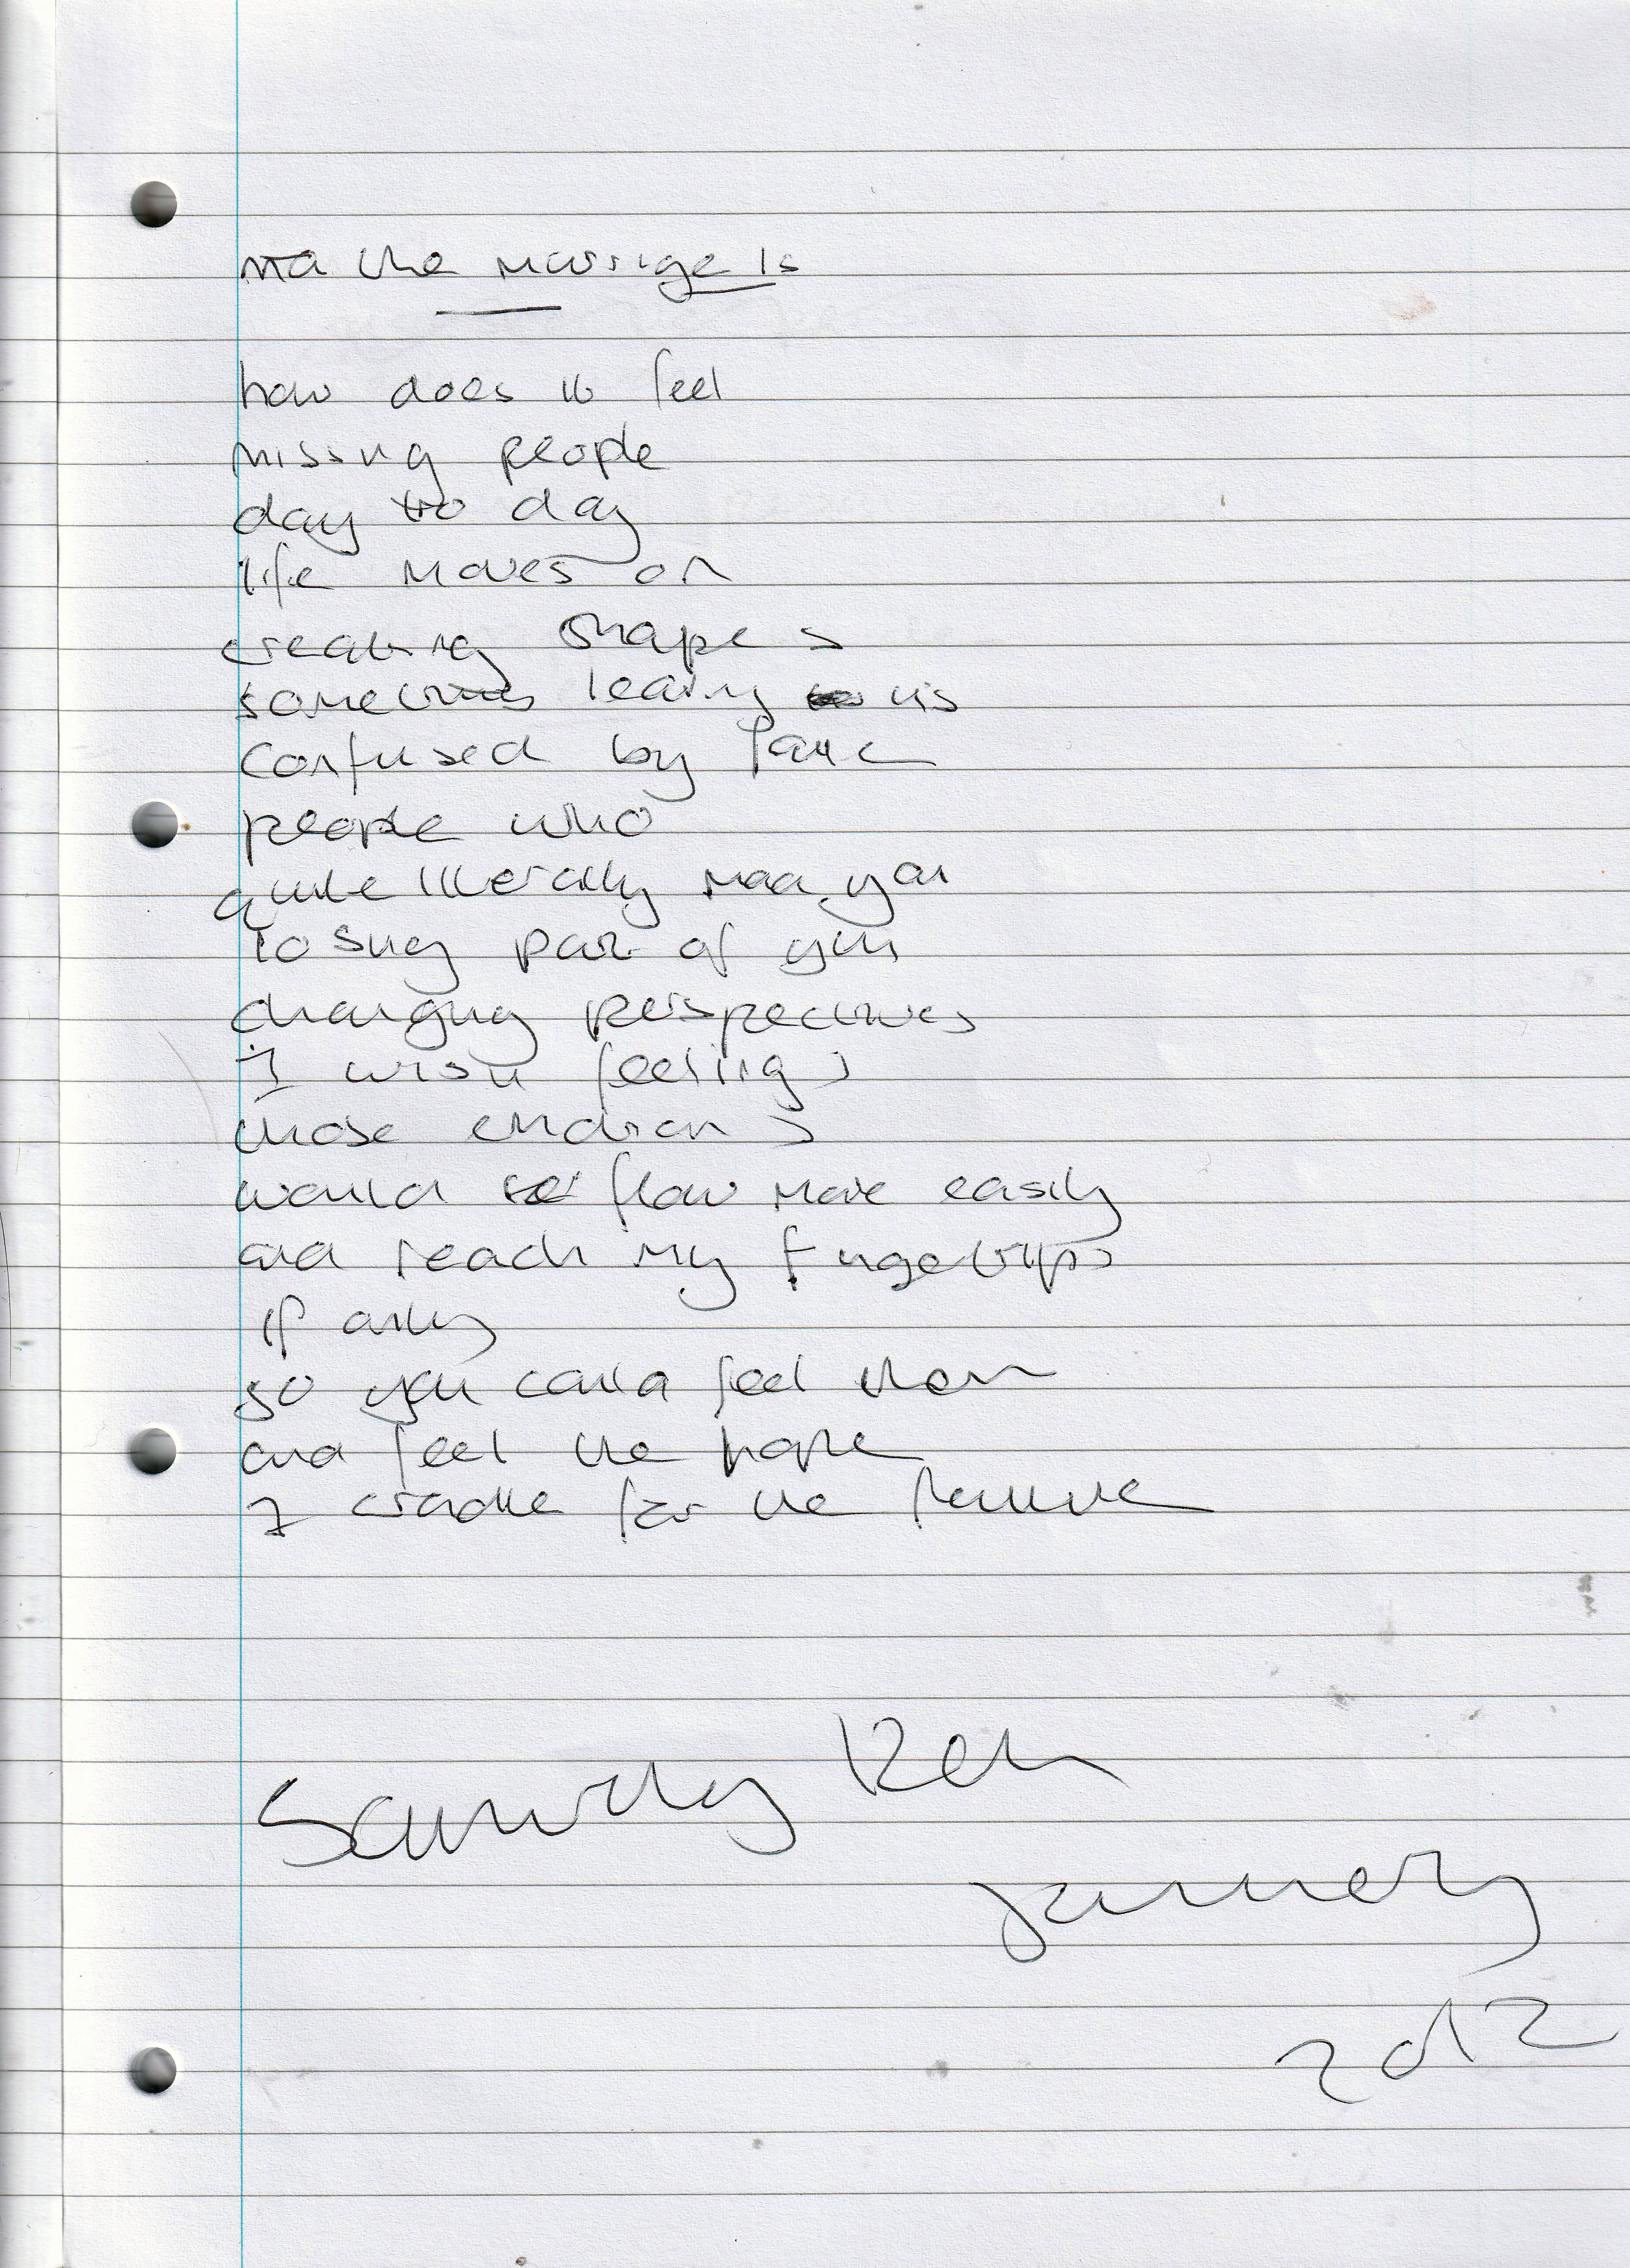 the marrige is
how does it feel
missing people
day to day
life moves on
creating shapes
sometimes leaving us
confused by fate
people who
quite literally made you
losing part of you
changing perspectives
I wish feelings
those emotions
would flow more easily
and reach my fingertips
if only
so you could feel them
and feel the hope
I cradle for the future
Sandy
January
2012